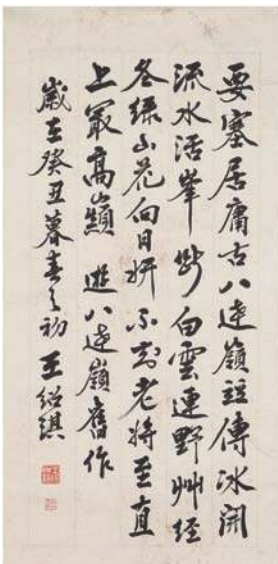 要塞居庸古八達嶺傳冰開
流水活峯斷白雲連野艸經
冬綠山花向日妍不知老將至直
上最高巔 遊八達嶺舊作
歲在癸丑暮春之初 王紹